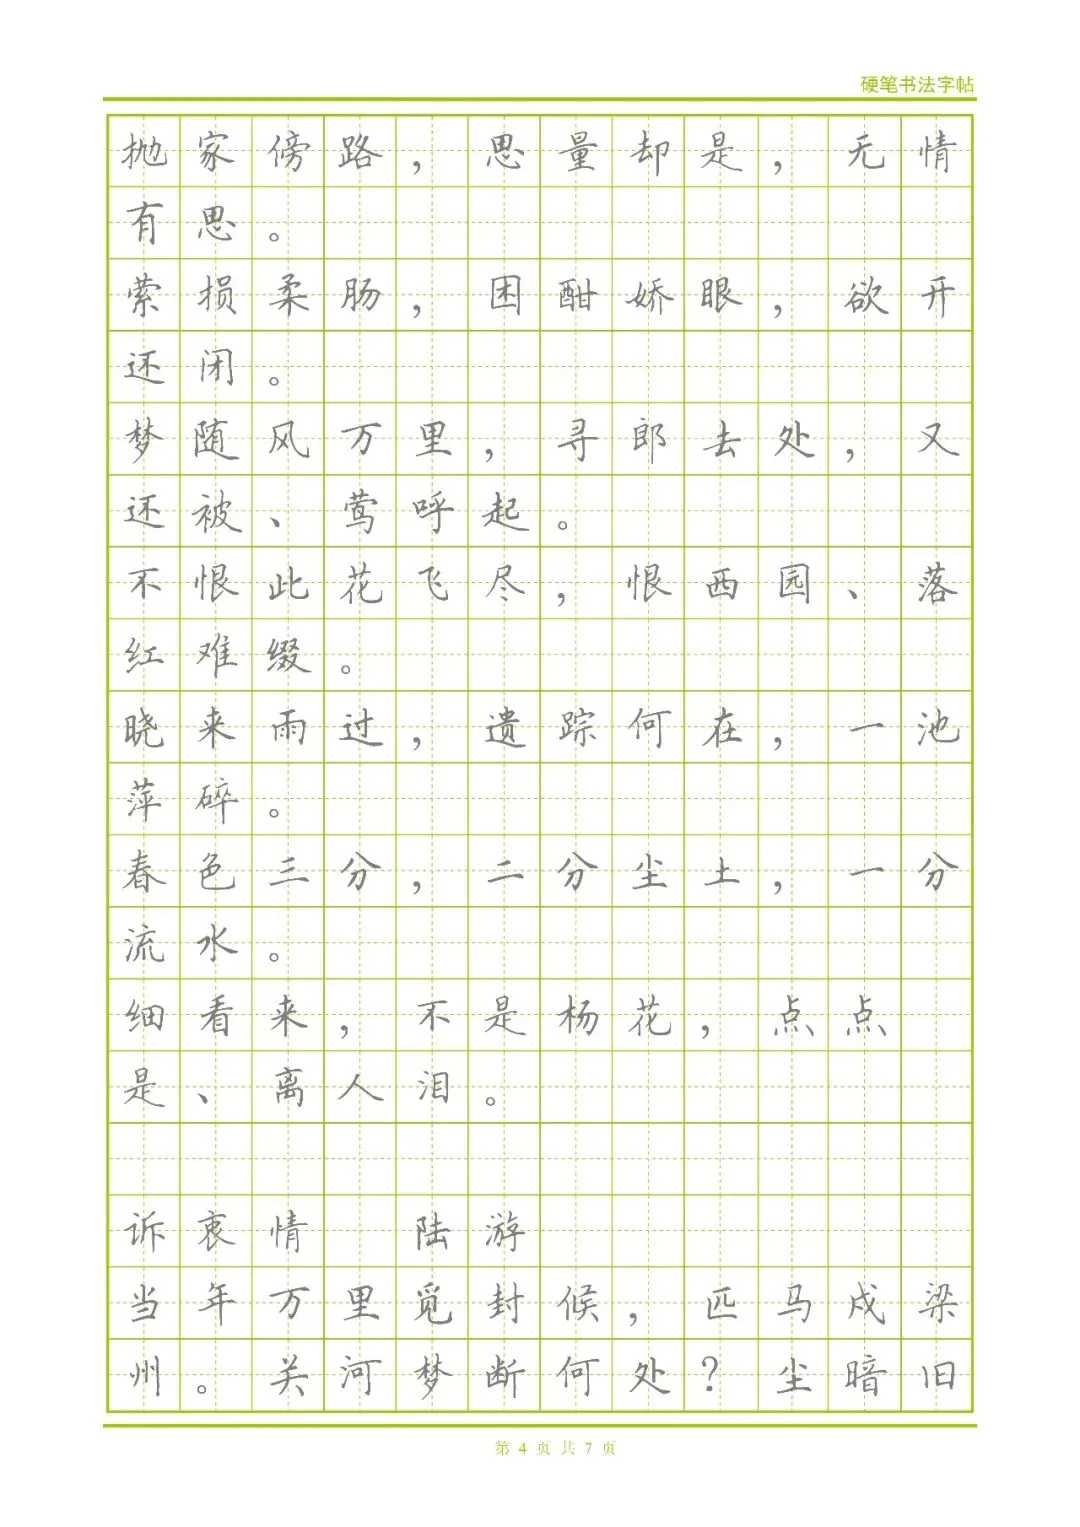 硬笔书法字帖
抛家傍路，思量却是，无情
有思。
萦损柔肠，困酣娇眼，欲开
还闭。
梦随风万里，寻郎去处，又
还被、莺呼起。
不恨此花飞尽，恨西园、落
红难缀。
晓来雨过，遗踪何在，一池
萍碎。
春色三分，二分尘土，一分
流水。
细看来，不是杨花，点点
是、离人泪。
诉衷情 陆游
当年万里觅封候，匹马戍梁
州。关河梦断何处？尘暗旧
第 4 页 共 7 页